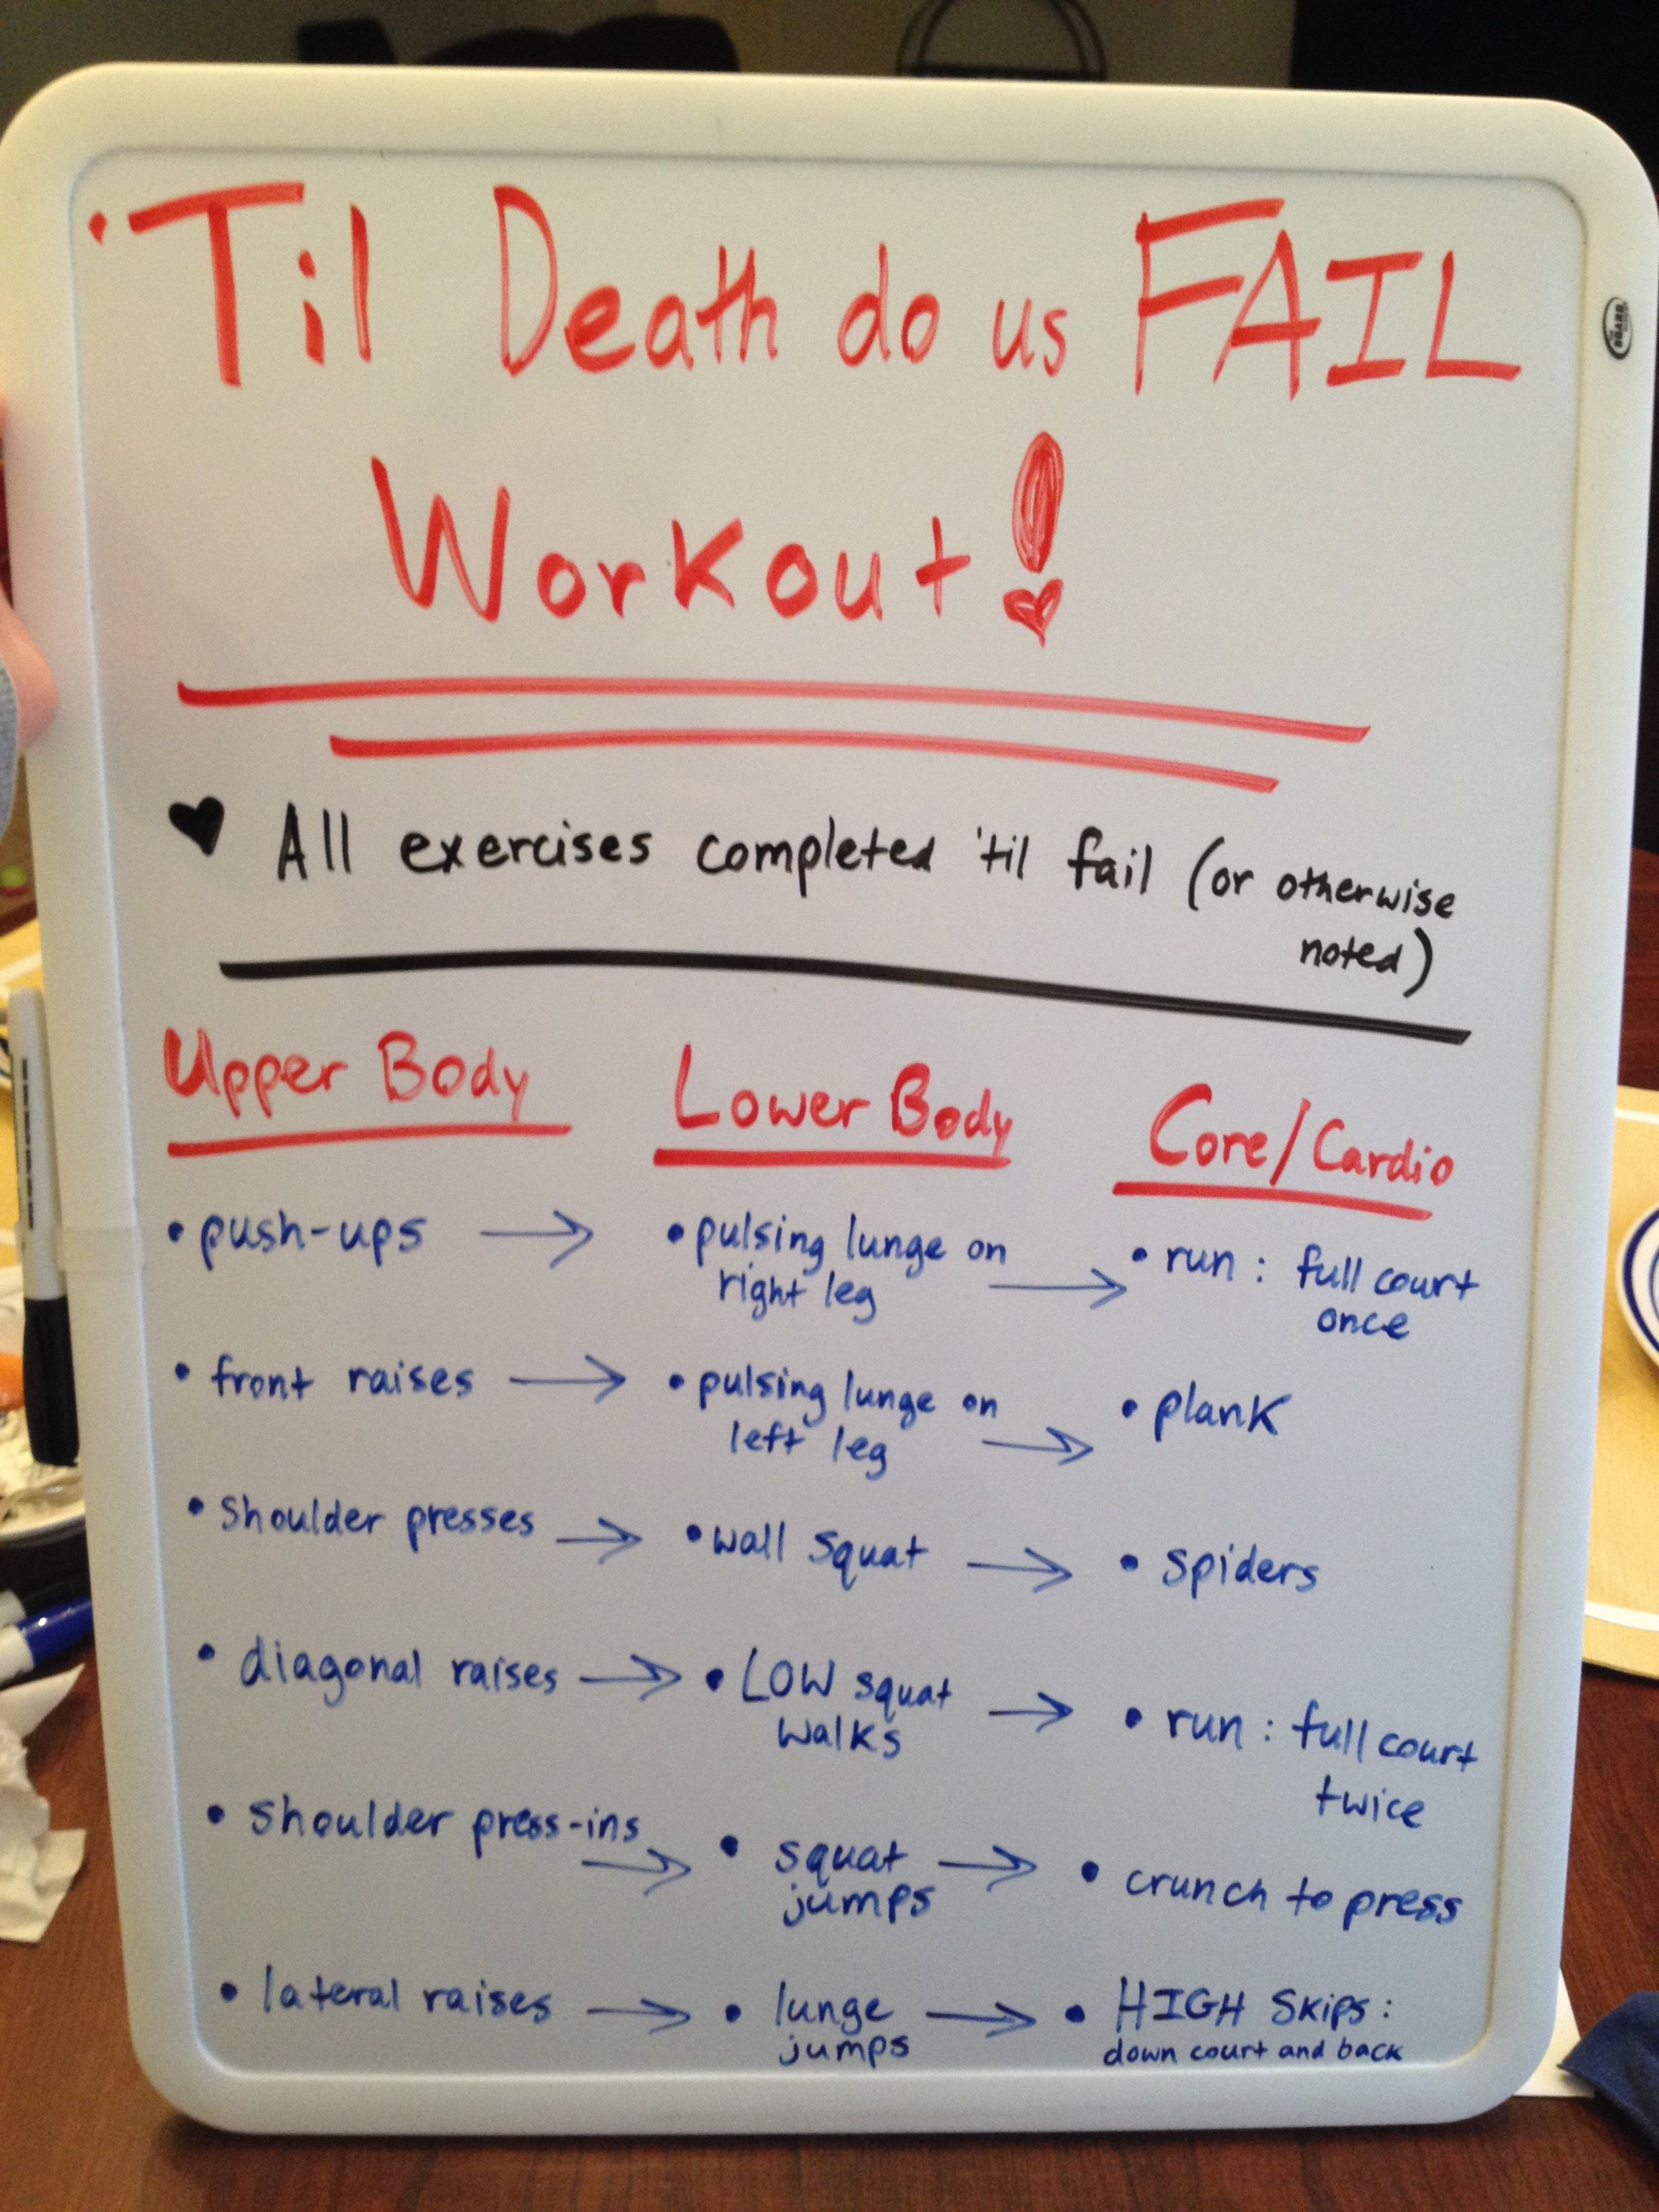 'Til Death do us FAIL
Workout!
♥ All exercises completed 'til fail (or otherwise
noted)
Upper Body Lower Body Core/Cardio
• push-ups → • pulsing lunge on
right leg → • run : full court
once
• front raises → • pulsing lunge on
left leg → • plank
• shoulder presses → • wall squat → • spiders
• diagonal raises → • LOW squat
walks → • run : full court
twice
• shoulder press-ins → • squat
jumps → • crunch to press
• lateral raises → • lunge
jumps → • HIGH skips :
down court and back
BOARD